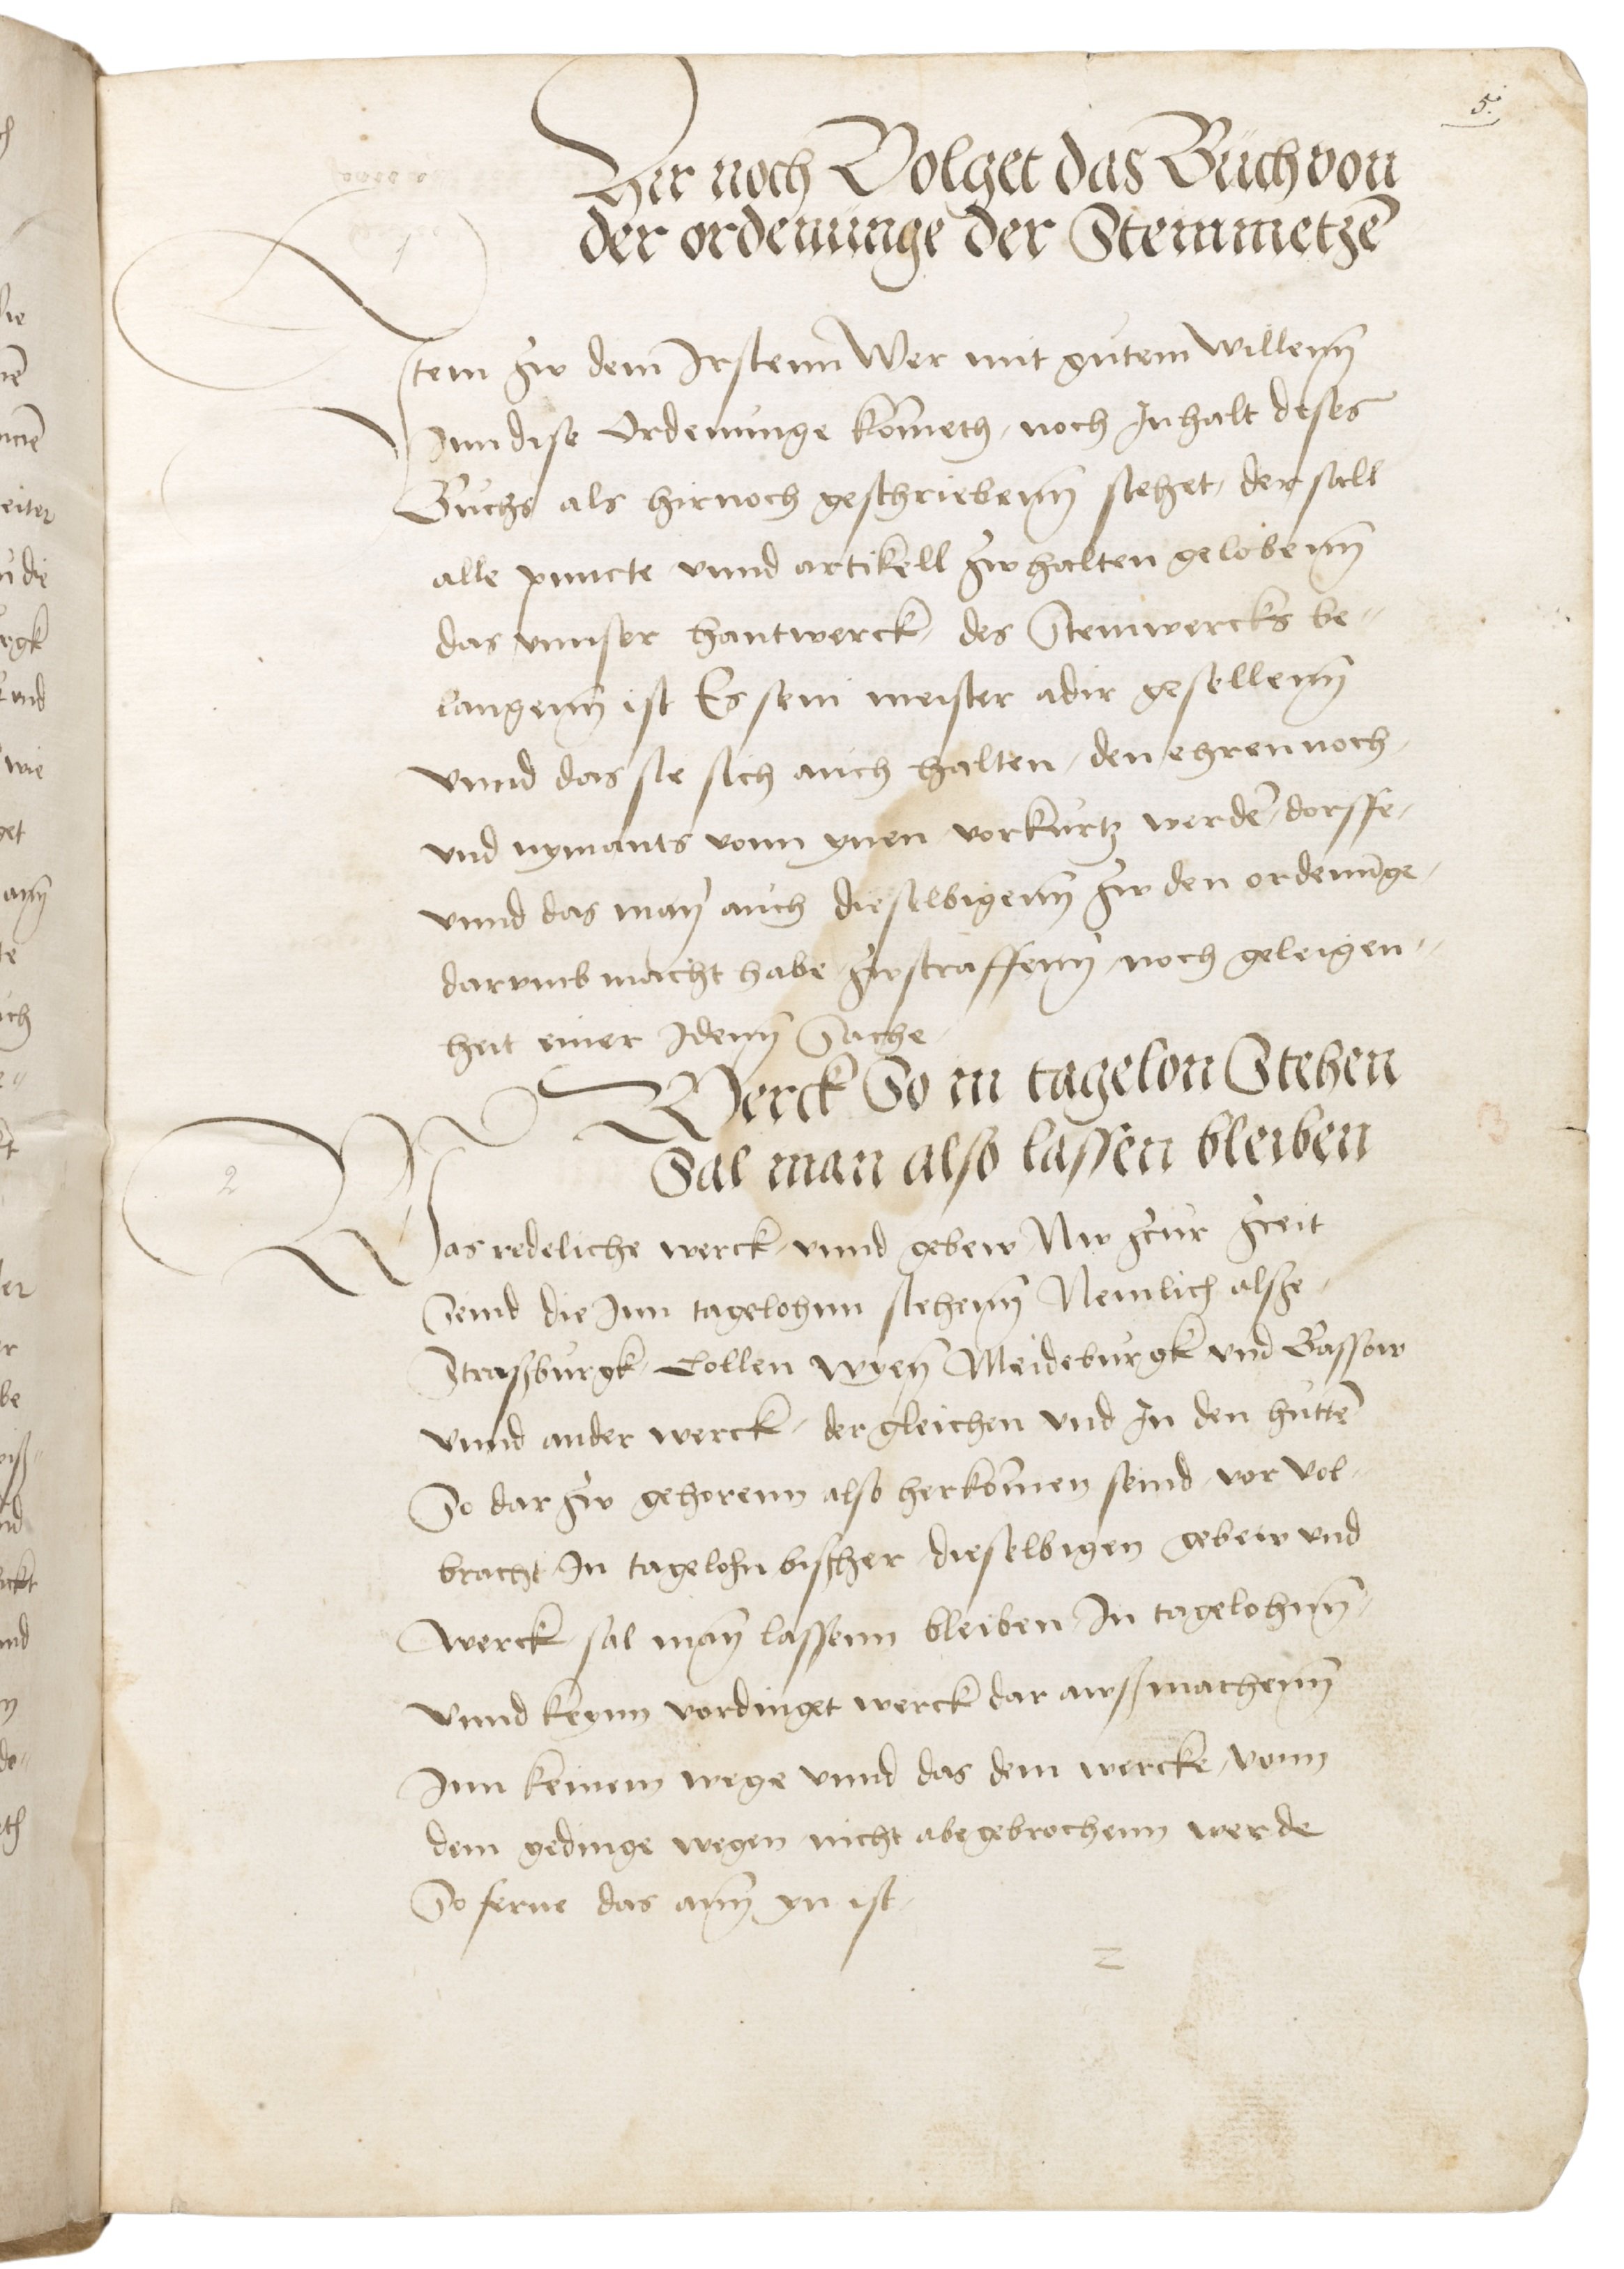 5.
Hir noch Volget das Buch von
der ordenunge der Steinmetzē
1
Item zw dem Irstenn Wer mit gutem Willenn
Inn dise Ordenunge kōmeth, noch Inhalt dises
Buchs als hirnoch geschriebenn stehet, der sall
alle puncte vnnd artikell zw halten gelobenn
das vnnser hantwerck, des Steinwercks be-
langenn ist Es sein meister adir gesellenn
vnnd das sie sich auch halten, den ehren noch,
vnd nymants vonn ynen vorkurtz werdē, dorffe,
vnnd das man auch dieselbigenn zw den ordenūge,
darvmb macht habe zwstraffenn, noch geleigen-
heit einer Idenn Sache,
Werck So in tagelon Stehen
Sal man also lassen bleiben
2
Was redeliche werck, vnnd gebew Nw zcur zceit
Seind die Inn tagelohnn stehenn Nemlich alsze,
Straszburgk, Collen wyen Meideburgk vnd Bassow
vnnd ander werck, der gleichen vnd In den huttē
So dar zw gehorenn also herkōmen seind, vor vol-
bracht In tagelohn biszher, dieselbigen gebew vnd
werck, sal man lassenn bleiben In tagelohnn,
vnnd keynn vordinget werck dar awsz machenn
Inn keinem wege vnnd das dem wercke, vonn
dem gedinge wegen nicht abegebrochenn werde
So ferne das ann yn ist,